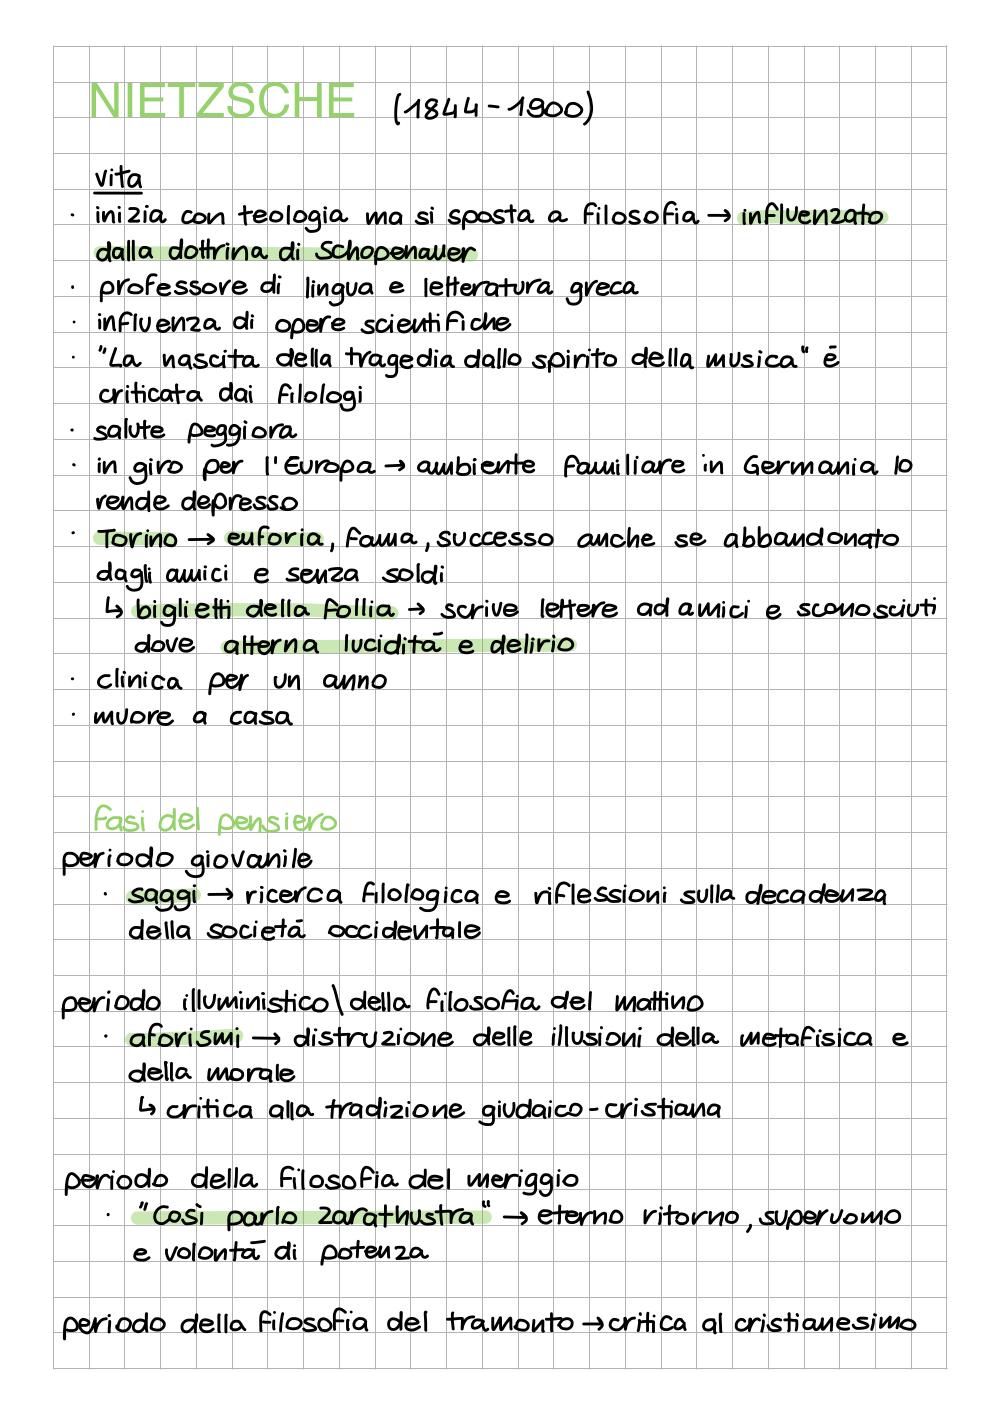 NIETZSCHE (1844-1900)
vita
· inizia con teologia ma si sposta a filosofia → influenzato
dalla dottrina di Schopenauer
· professore di lingua e letteratura greca
· influenza di opere scientifiche
· "La nascita della tragedia dallo spirito della musica" è
criticata dai filologi
· salute peggiora
· in giro per l'Europa → ambiente familiare in Germania lo
rende depresso
· Torino → euforia, fama, successo anche se abbandonato
dagli amici e senza soldi
↳ biglietti della follia → scrive lettere ad amici e sconosciuti
dove alterna lucidità e delirio
· clinica per un anno
· muore a casa
fasi del pensiero
periodo giovanile
· saggi → ricerca filologica e riflessioni sulla decadenza
della società occidentale
periodo illuministico\della filosofia del mattino
· aforismi → distruzione delle illusioni della metafisica e
della morale
↳ critica alla tradizione giudaico-cristiana
periodo della filosofia del meriggio
· "Così parlo Zarathustra" → eterno ritorno, superuomo
e volontà di potenza
periodo della filosofia del tramonto → critica al cristianesimo